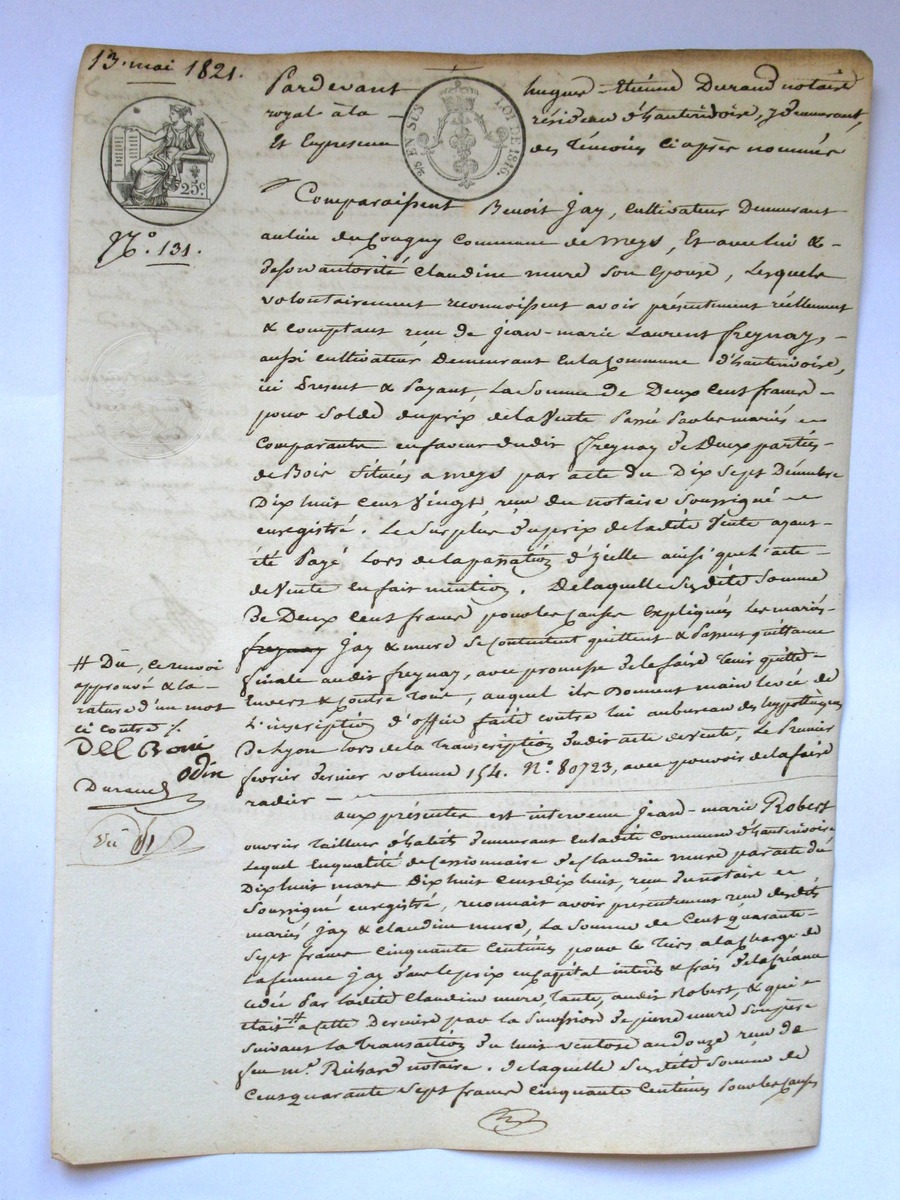 13. mai 1821.
Pardevant hugues-Etienne Durand notaire
royal à la résidence d'hauterivoire, y demeurant,
Et En presence des témoins ci après nommés
25 EN SUS
LOI DE 1816.
25c
No. 131.
Comparaissent Benoit Jay, cultivateur Demeurant
au lieu du Pouguy commune de meys, Et avec lui &
de son autorité Claudine mure son Epouse, Lesquels
volontairement reconnoissent avoir présentement réellement
& comptant reçu de jean-marie Laurent freynay,
aussi cultivateur Demeurant En la Commune d'hauterivoire,
ici Present & Payant, La Somme de Deux cent francs
pour Solde du prix de la Vente Passée Par les mariés
Comparants en faveur dudit freynay de Deux parties
de Bois situées a meys par acte du Dix Sept Décembre
Dix huit cent Vingt, reçu du notaire Soussigné
enregistré. Le Surplus du prix de la dite Vente ayant
été Payé Lors de la passation d'ycelle ainsi que l'acte
de Vente en fait mention. De laquelle Susdite Somme
de Deux Cent francs pour les causes Expliquées Les mariés
freynay Jay & mure se contentent quittent & Passent quittance
finale audit freynay, avec promesse de le faire tenir quitte
Envers & Contre tous, auquel ils Donnent main levée de
L'inscription d'office faite contre lui au bureau des hypothèques
De Lyon lors de la Transcription dudit acte de Vente, Le Premier
février dernier volume 154. No. 80723, avec pouvoir de la faire
radier
aux présentes est intervenu Jean-marie Robert
ouvrier tailleur d'habits demeurant En la dite Commune d'hauterivoire
Lequel En qualité de Cessionnaire de Claudine mure par acte du
Dix huit mars Dix huit Cent dix huit, reçu du notaire
Soussigné enregistré, reconnait avoir présentement reçu desdits
mariés Jay & Claudine mure, La Somme de Cent quarante
Sept francs Cinquante Centimes pour le tiers a la charge de
La femme Jay dans le prix en capital intérêts & frais de la créance
cédée Par ladite Claudine mure, tante, audit Robert, & qui
était # a cette Derniere par la Succession de pierre mure Son père
suivant la Transaction du huit ventose an douze reçu de
feu me. Richard notaire. de laquelle Susdite Somme de
Cent quarante Sept francs Cinquante Centimes Pour les causes
# Dû, ce renvoi
approuvé & la
rature d'un mot
ci contre /.
Durand